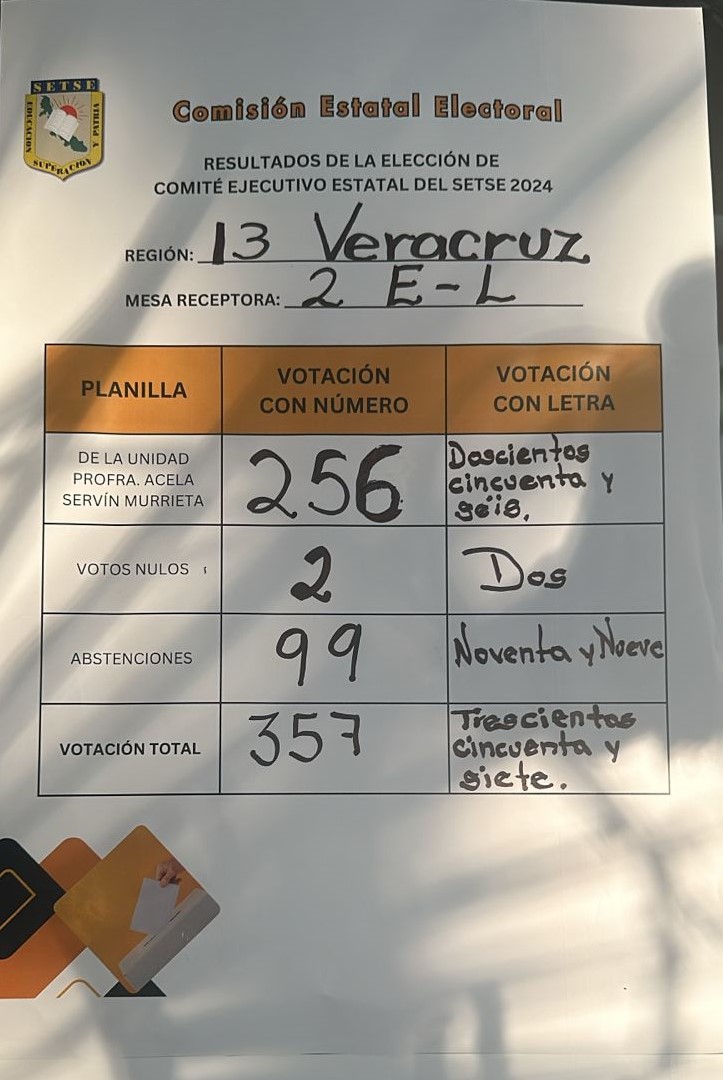 SETSE
EDUCACIÓN
Y PATRIA
SUPERACIÓN
Comisión Estatal Electoral
RESULTADOS DE LA ELECCIÓN DE
COMITÉ EJECUTIVO ESTATAL DEL SETSE 2024
REGIÓN: 13 Veracruz
MESA RECEPTORA: 2 E-L
PLANILLA
VOTACIÓN
CON NÚMERO
VOTACIÓN
CON LETRA
DE LA UNIDAD
PROFRA. ACELA
SERVÍN MURRIETA
256
Doscientos
cincuenta y
seis.
VOTOS NULOS
2
Dos
ABSTENCIONES
99
Noventa y Nueve
VOTACIÓN TOTAL
357
Trescientos
cincuenta y
siete.